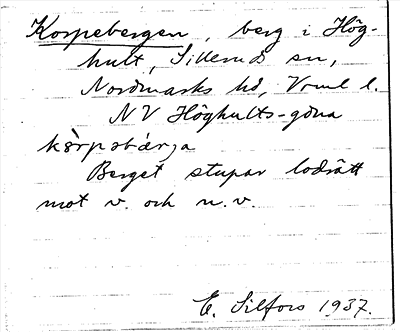 Korpebergen, berg i Hög-
hult, Sillerud sn,
Nordmarks hd, Vrml l.
NV Höghults-gdna
kòrpəbǽrja
Berget stupar lodrätt
mot v. och n.v.
E. Silfors 1937.